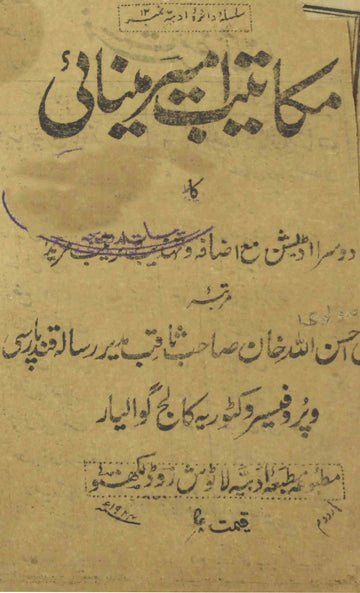 سلسلہ دائرۂ ادبیہ نمبر ۱۲
مکاتیب امیر مینائی
کا
دوسرا اڈیشن مع اضافہ و تہذیب مزید
مرتبہ
احسن اللہ خان صاحب ثاقب مدیر رسالہ قند پارسی
و پروفیسر وکٹوریہ کالج گوالیار
مطبوعہ مطبعہ ادبیہ لاٹوش روڈ لکھنؤ
قیمت